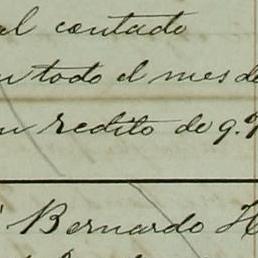 al contado
n todo el mes de
n redito de 9.
Bernardo H